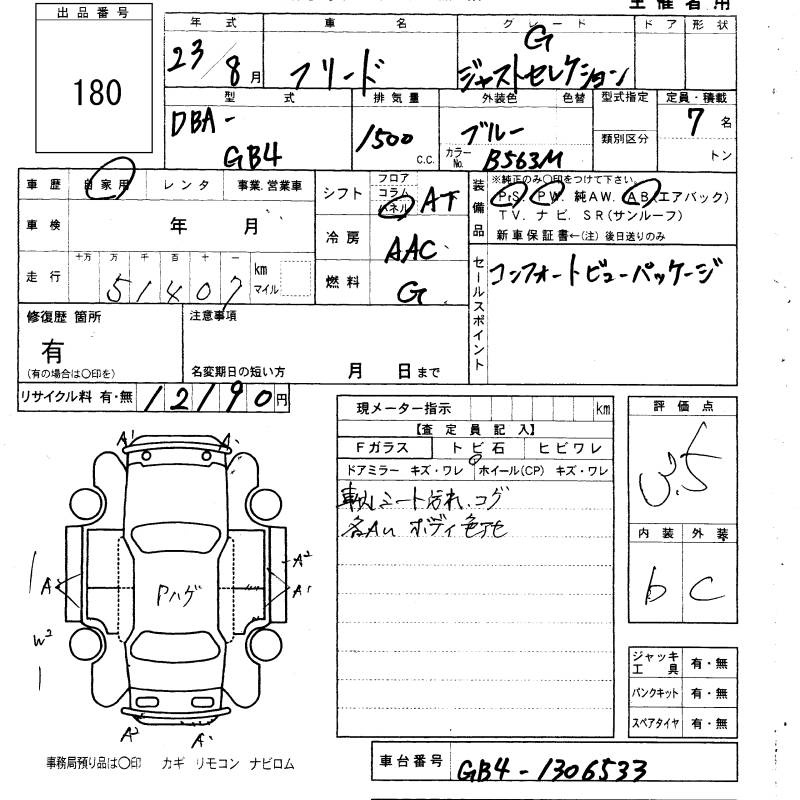 主催者用
出品番号
180
年式 車名 グレード ドア 形状
23/8月 フリード G
ジャストセレクション
型式 排気量 外装色 色替 型式指定 定員・積載
DBA-
GB4 1500 c.c. ブルー 7名
カラーNo. B563M 類別区分 トン
車歴 自家用 レンタ 事業.営業車
車検 年 月
走行 十万 万 千 百 十 一
51407 km マイル
シフト フロア コラム パネル AT
冷房 AAC
燃料 G
装備品 ※純正のみ〇印をつけて下さい。
P.S. P.W. 純AW. AB(エアバック)
TV. ナビ. SR(サンルーフ)
新車保証書←(注) 後日送りのみ
セールスポイント コンフォートビューパッケージ
修復歴 箇所
有
(有の場合は〇印を)
注意事項
名変期日の短い方 月 日まで
リサイクル料 有・無 12190円
現メーター指示 km
【査定員記入】
Fガラス トビ石 ヒビワレ
ドアミラー キズ・ワレ ホイール(CP) キズ・ワレ
シート汚れ.コゲ
各AU ボディ色アセ
評価点
3.5
内装 外装
b C
ジャッキ工具 有・無
パンクキット 有・無
スペアタイヤ 有・無
A' A'
A² A'
A'
W²
Pハゲ
A² A'
事務局預り品は〇印 カギ リモコン ナビロム
車台番号 GB4-1306533